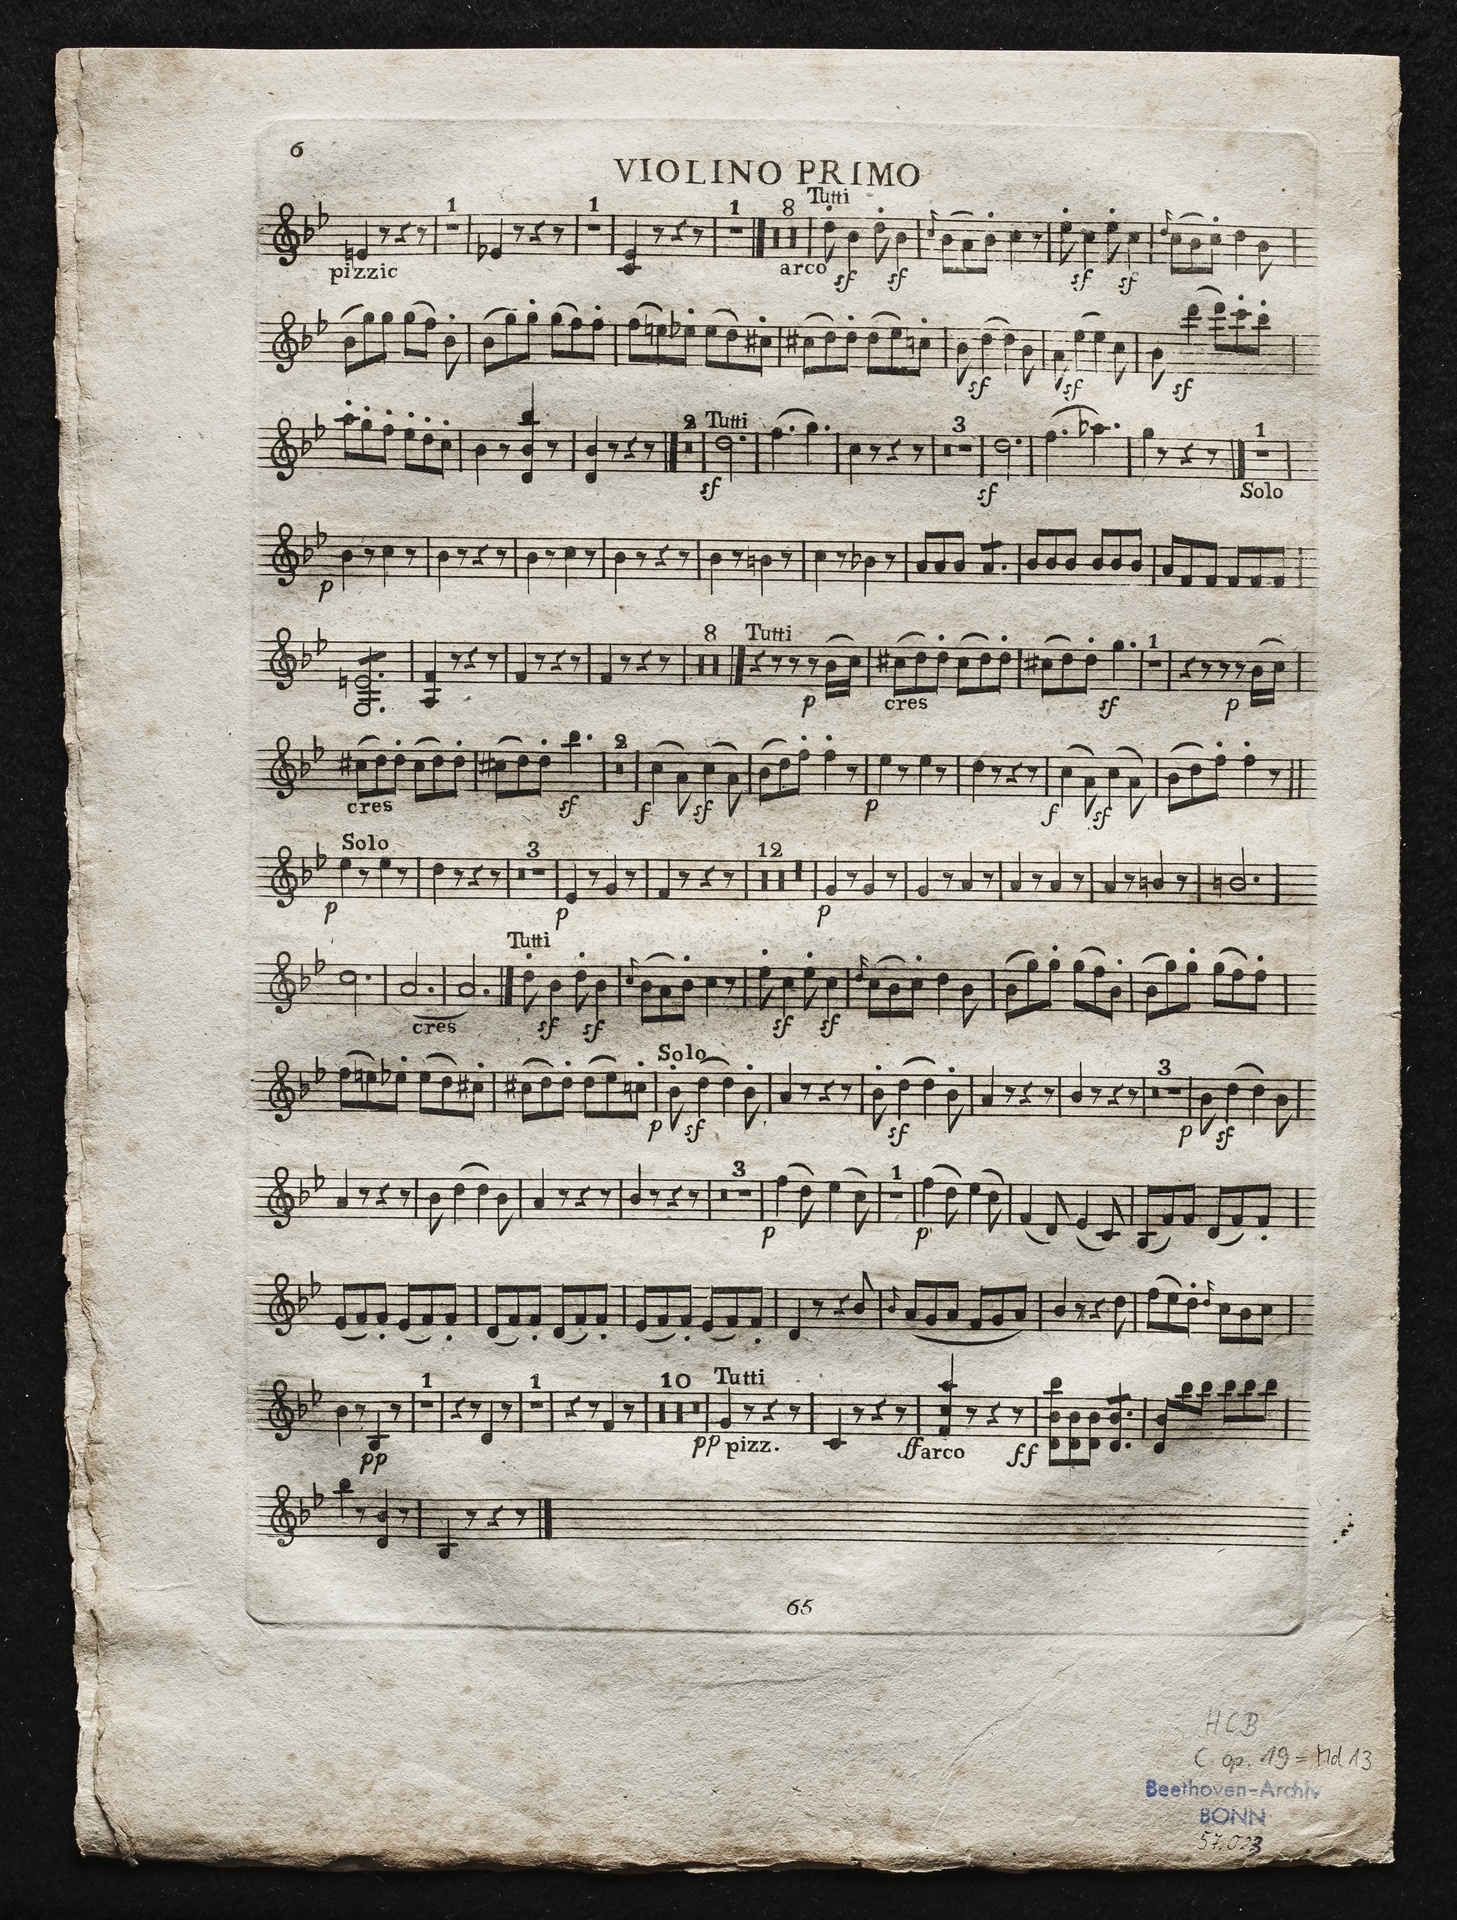 6
VIOLINO PRIMO
1 1 1 8 Tutti
pizzic arco sf sf sf sf
sf sf sf
2 Tutti 3 1
sf sf Solo
p
8 Tutti 1
p cres sf p
2
cres sf f sf p f sf
Solo 3 12
p p p
Tutti
cres sf sf sf sf
Solo 3
p sf sf p sf
3 1
p p
1 1 10 Tutti
pp pp pizz. ff arco ff
65
HCB
C op. 19 = Md 13
Beethoven-Archiv
BONN